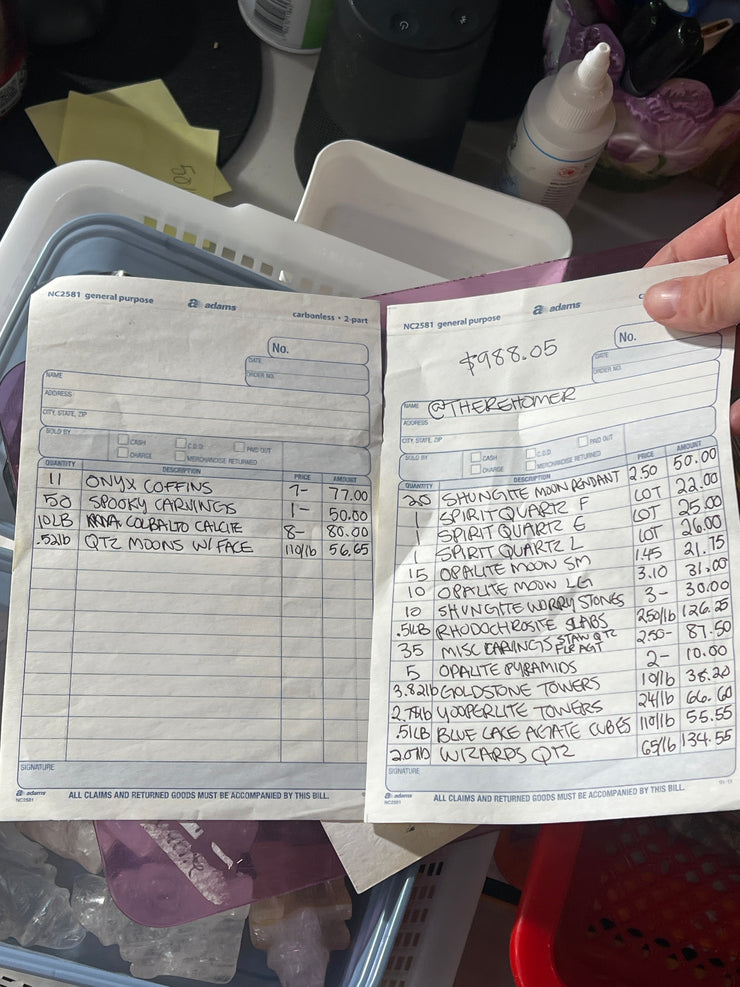 NC2581 general purpose adams carbonless • 2-part
No.
DATE
ORDER NO.
NAME
ADDRESS
CITY, STATE, ZIP
SOLD BY CASH C.O.D PAID OUT
CHARGE MERCHANDISE RETURNED
QUANTITY DESCRIPTION PRICE AMOUNT
11 ONYX COFFINS 7- 77.00
50 SPOOKY CARVINGS 1- 50.00
10LB COLBALTO CALCITE 8- 80.00
.52lb QTZ MOONS W/ FACE 110/lb 56.65
SIGNATURE
adams
NC2581
ALL CLAIMS AND RETURNED GOODS MUST BE ACCOMPANIED BY THIS BILL.
NC2581 general purpose adams
$988.05
No.
DATE
ORDER NO.
NAME @THEREHOMER
ADDRESS
CITY, STATE, ZIP
SOLD BY CASH C.O.D PAID OUT
CHARGE MERCHANDISE RETURNED
QUANTITY DESCRIPTION PRICE AMOUNT
20 SHUNGITE MOON PENDANT 2.50 50.00
1 SPIRIT QUARTZ F LOT 22.00
1 SPIRIT QUARTZ E LOT 25.00
1 SPIRIT QUARTZ L LOT 26.00
15 OPALITE MOON SM 1.45 21.75
10 OPALITE MOON LG 3.10 31.00
10 SHUNGITE WORRY STONES 3- 30.00
.51LB RHODOCHROSITE SLABS 250/lb 126.25
35 MISC CARVINGS STAW QTZ FLR AGT 2.50- 87.50
5 OPALITE PYRAMIDS 2- 10.00
3.82lb GOLDSTONE TOWERS 10/lb 38.20
2.78lb YOOPERLITE TOWERS 24/lb 66.60
.51LB BLUE LACE AGATE CUBES 110/lb 55.55
2.07lb WIZARDS QTZ 65/lb 134.55
SIGNATURE
adams
NC2581
ALL CLAIMS AND RETURNED GOODS MUST BE ACCOMPANIED BY THIS BILL.